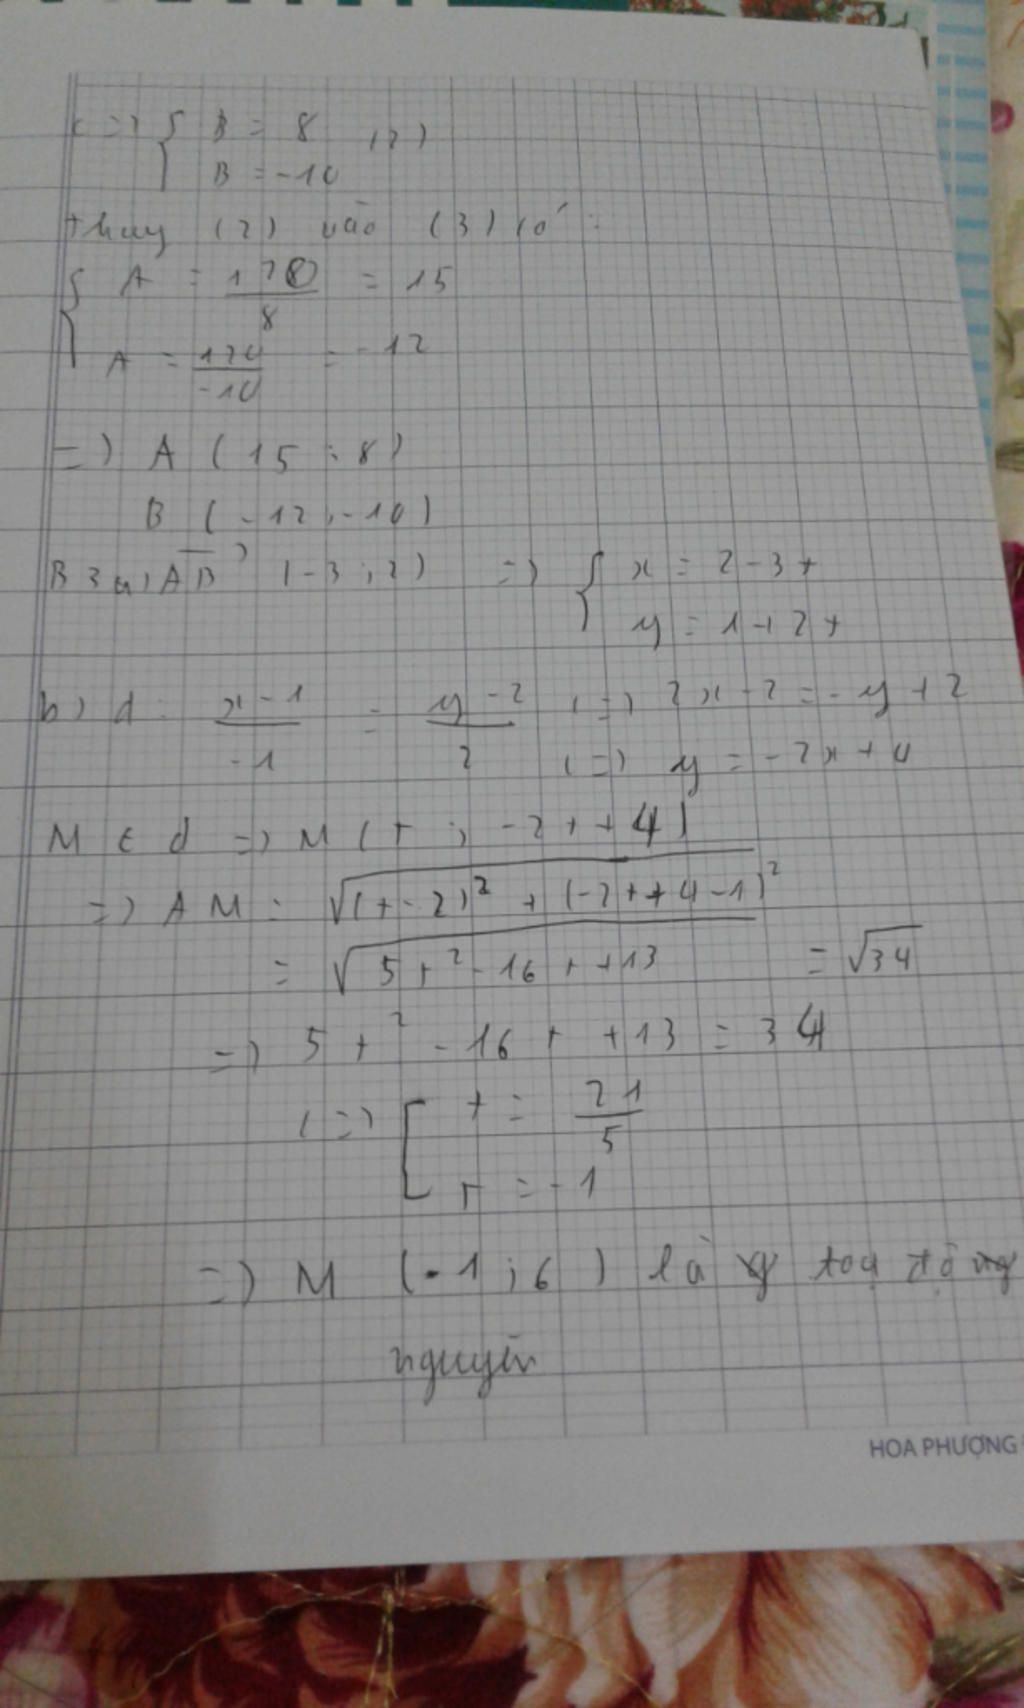 <=> { B = 8 (2)
B = -10
thay (2) vào (3) có :
{ A = 120/8 = 15
A = 120/-10 = -12
=) A (15 ; 8)
B (-12 ; -10)
B3 a, AB (-3 ; 2) => { x = 2 - 3t
y = 1 + 2t
b) d : x - 1 / -1 = y - 2 / 2 <=> 2x - 2 = - y + 2
<=> y = - 2x + 4
M ∈ d => M (t ; -2t + 4)
=> AM = √(t - 2)² + (-2t + 4 - 1)²
= √5t² - 16t + 13 = √34
=> 5t² - 16t + 13 = 34
<=> [ t = 21/5
t = -1
=> M (-1 ; 6) là toạ độ
nguyên
HOA PHƯỢNG